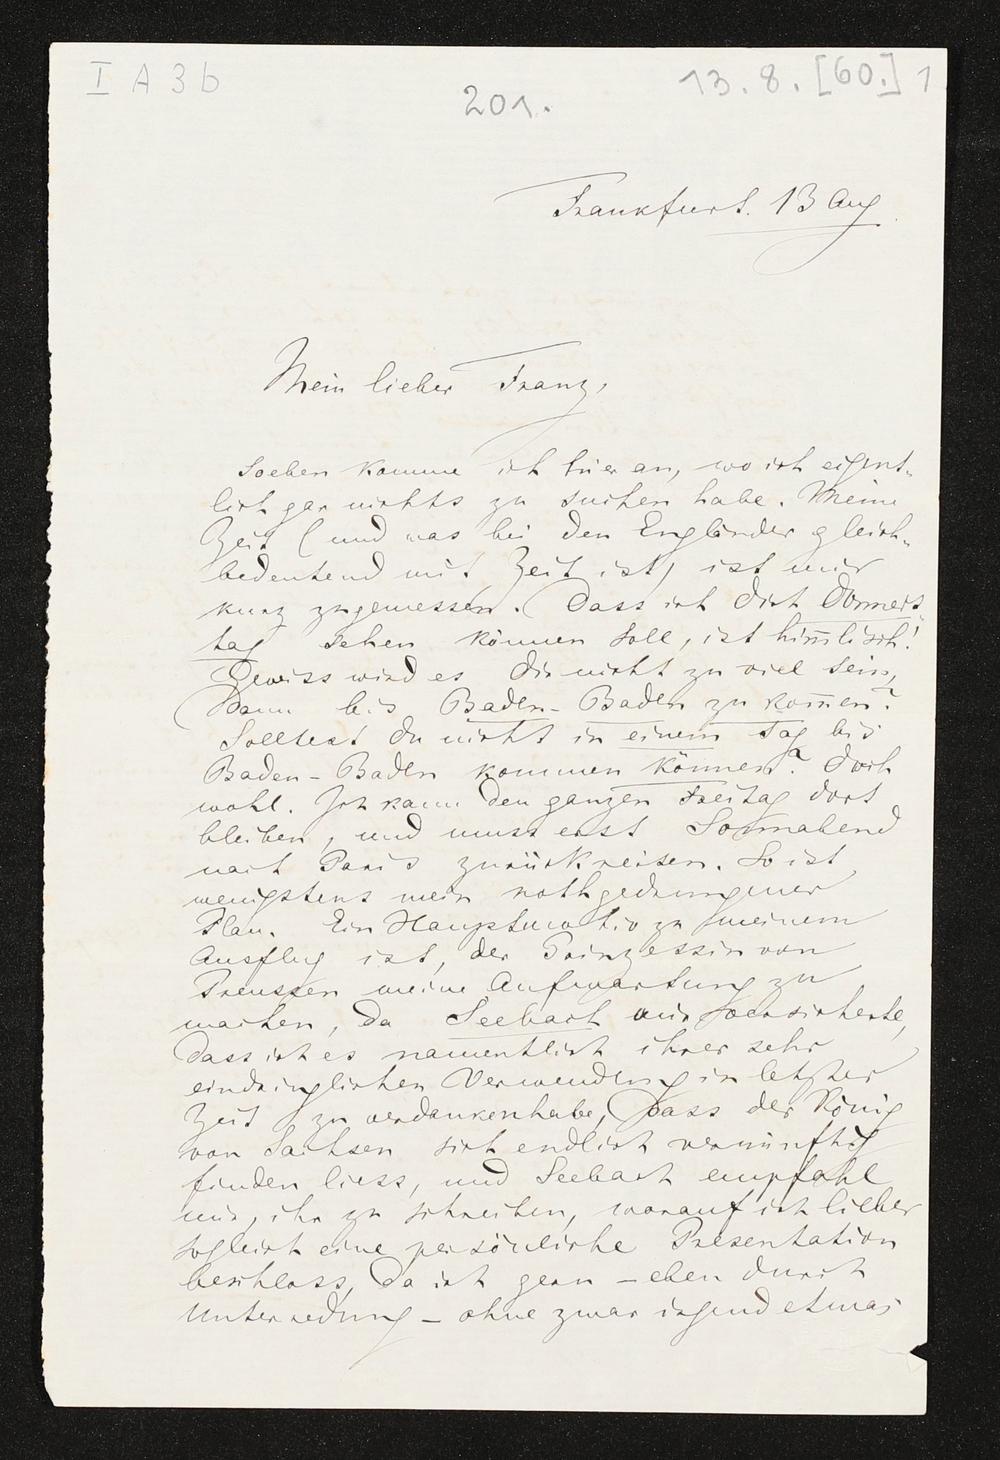 I A 3 b
201.
13. 8. [60.] 1
Frankfurt. 13 Aug
Mein lieber Franz,
Soeben komme ich hier an, wo ich eigent-
lich gar nichts zu suchen habe. Meine
Zeit (und was bei den Engländer gleich-
bedeutend mit Zeit ist) ist mir
kurz zugemessen. Dass ich dich Donners
tag sehen können soll, ist him̅lisch!
Gewiss wird es dir nicht zu viel sein,
Dann bis Baden-Baden zu kom̅en?
Solltest du nicht in einem Tag bis
Baden-Baden kommen können? Doch
wohl. Ich kann den ganzen Freitag dort
bleiben, und muss erst Sonnabend
nach Paris zurückreisen. So ist
wenigstens mein nothgedrungener
Plan. Ein Hauptmotiv zu meinem
Ausflug ist, der Prinzessin von
Preussen meine Aufwartung zu
machen, da Seebach mir versicherte,
dass ich es namentlich ihrer sehr
eindringlichen Verwendung in letzter
Zeit zu verdanken habe, dass der König
von Sachsen sich endlich vernünftig
finden liess, und Seebach empfahl
mir, ihr zu schreiben, worauf ich lieber
sogleich eine persönliche Presentation
beschloss, da ich gern – eben durch
Unterredung – ohne zwar irgend etwas